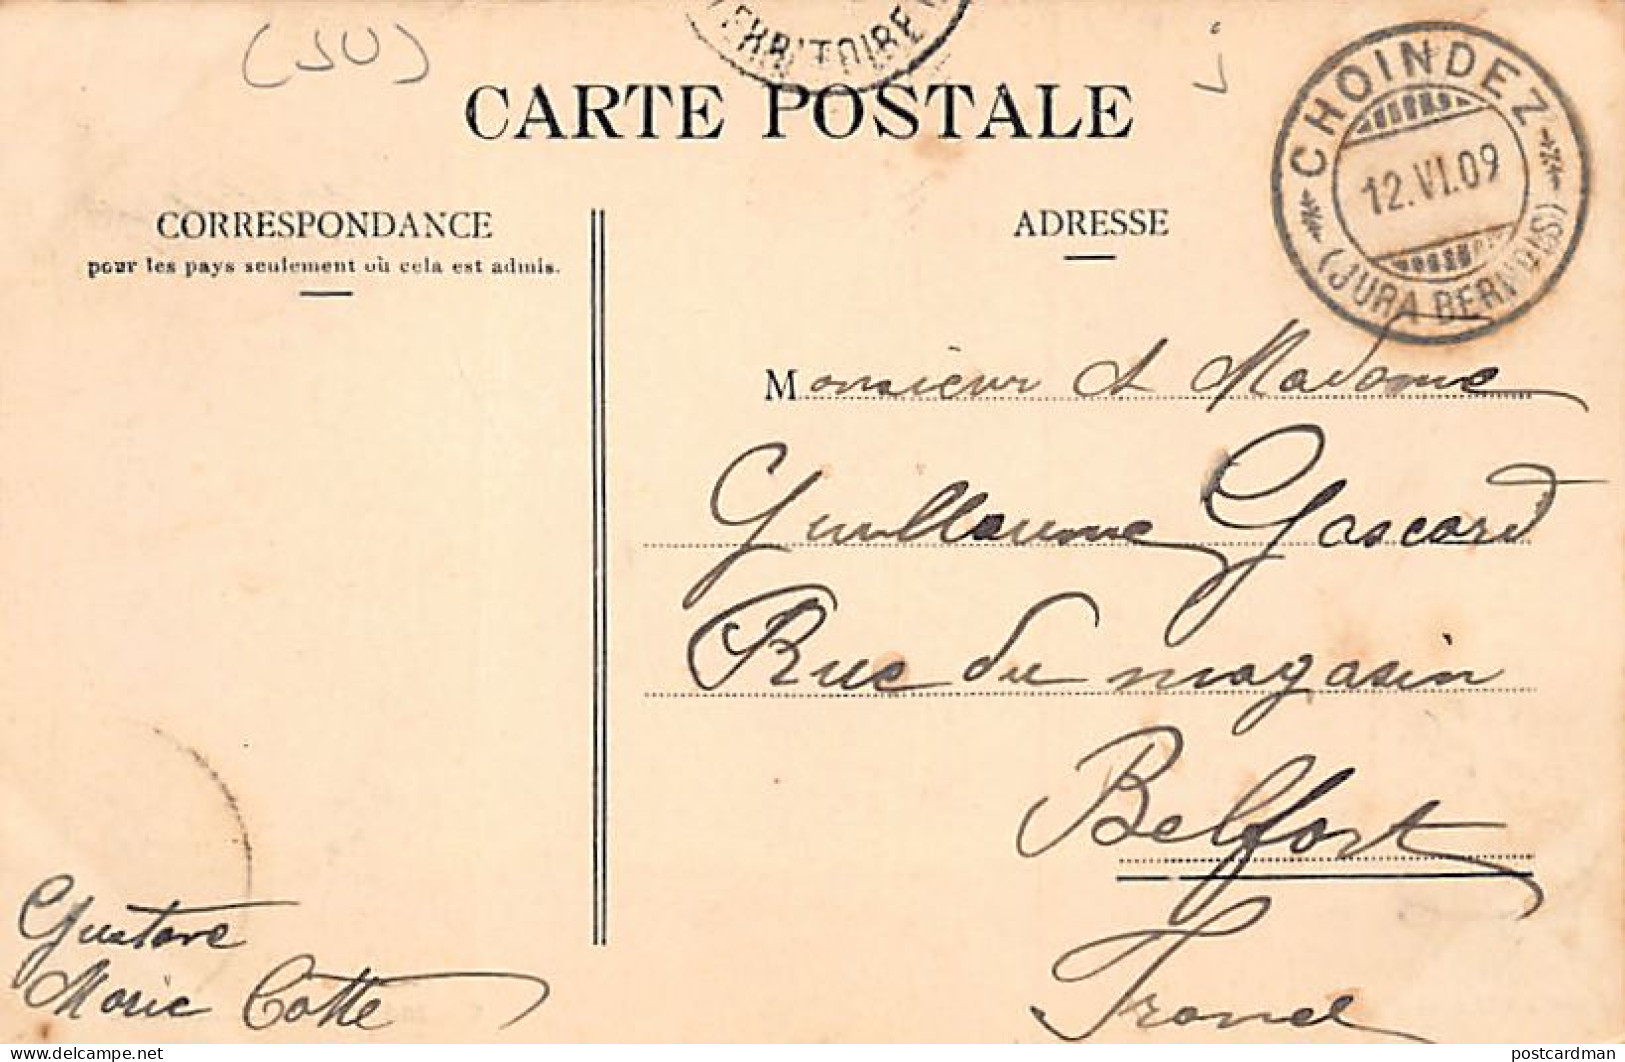 (JU)
TERRITOIRE
CARTE POSTALE
CHOINDEZ
12.VI.09
(JURA BERNOIS)
CORRESPONDANCE
pour les pays seulement où cela est admis.
ADRESSE
Monsieur & Madame
Guillaume Gascard
Rue du magasin
Belfort
France
Gustave
Marie Cotte
delcampe.net
postcardman